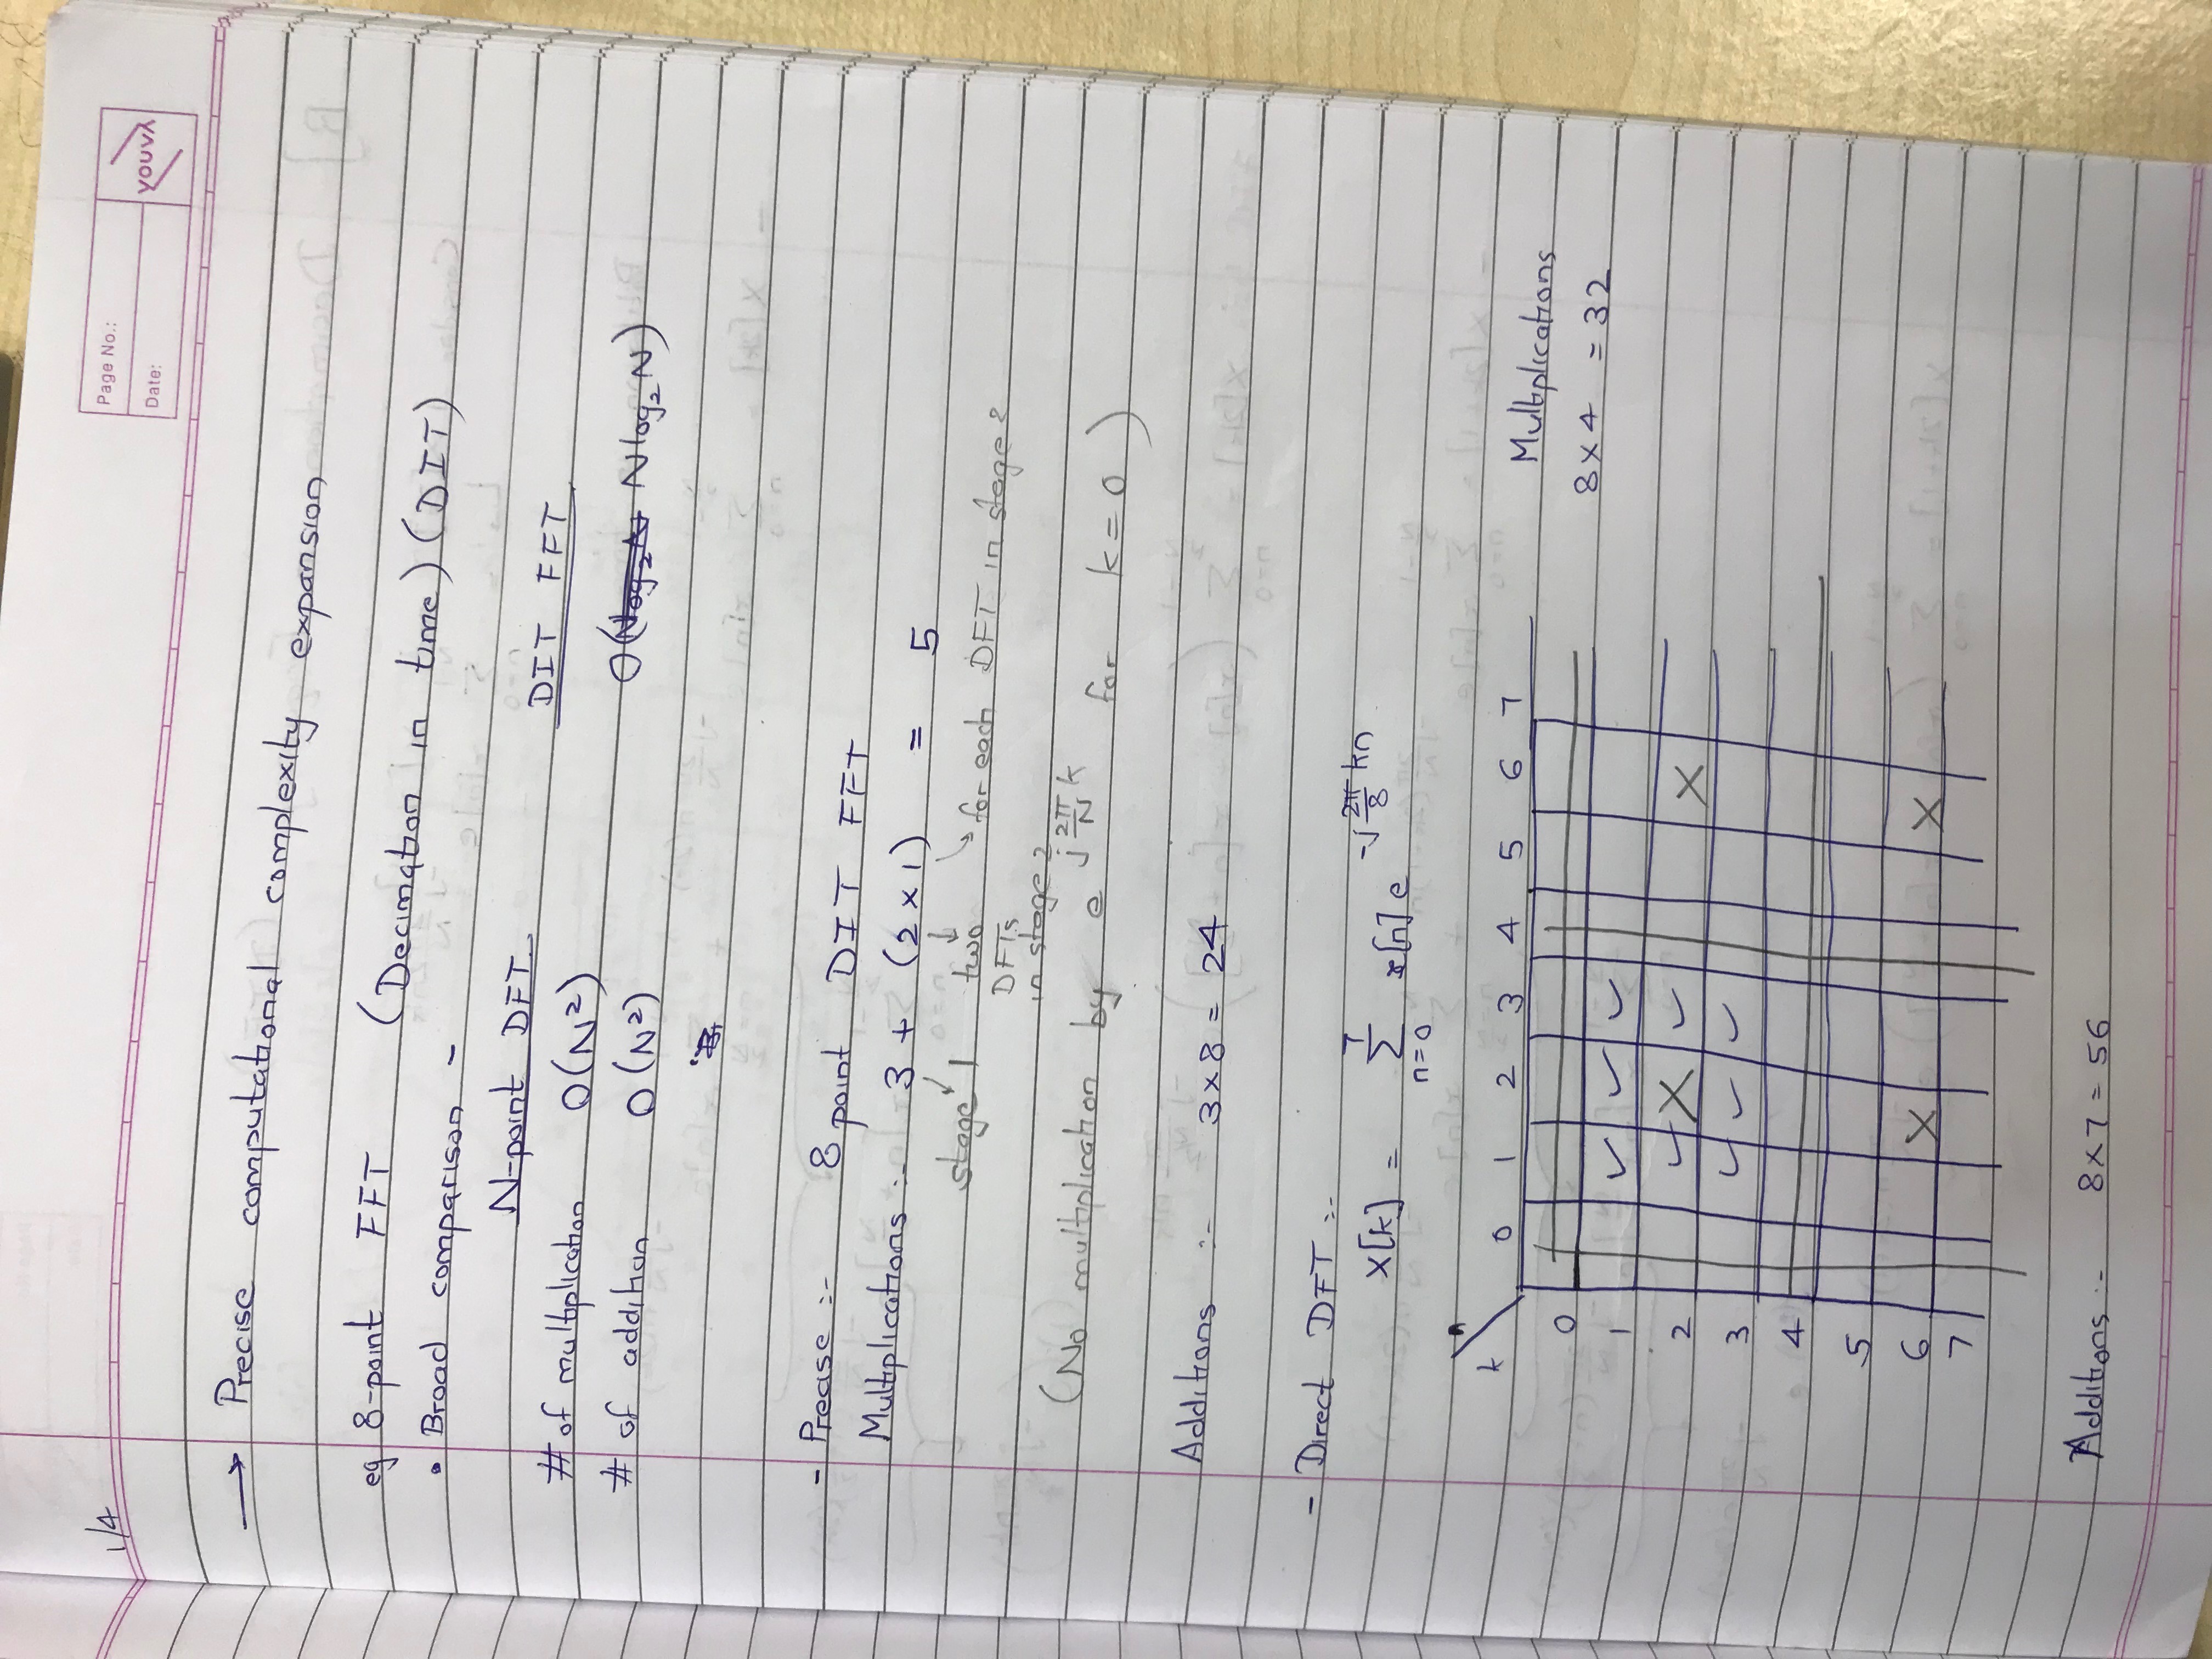 1/4
Page No.:
Date:
YOUVA
→ Precise computational complexity expansion
eg 8-point FFT (Decimation in time) (DIT)
• Broad comparison -
N-point DFT DIT FFT
# of multiplication O(N²)
# of addition O(N²) O(N log₂ N)
- Precise :- 8 point DIT FFT
Multiplications :- 3 + (2 × 1) = 5
stage 1 two for each DFT in stage 2
DFTs
in stage 2
(No multiplication by e^{j 2π/N k} for k = 0)
Additions :- 3×8 = 24
- Direct DFT :-
X[k] = Σ_{n=0}^{7} x[n] e^{-j 2π/8 kn}
n
k 0 1 2 3 4 5 6 7
Multiplications
0
8×4 = 32
1 ✓ ✓ ✓
2 ✓ X ✓ X
3 ✓ ✓ ✓
4
5
6 X X
7
Additions :- 8×7 = 56